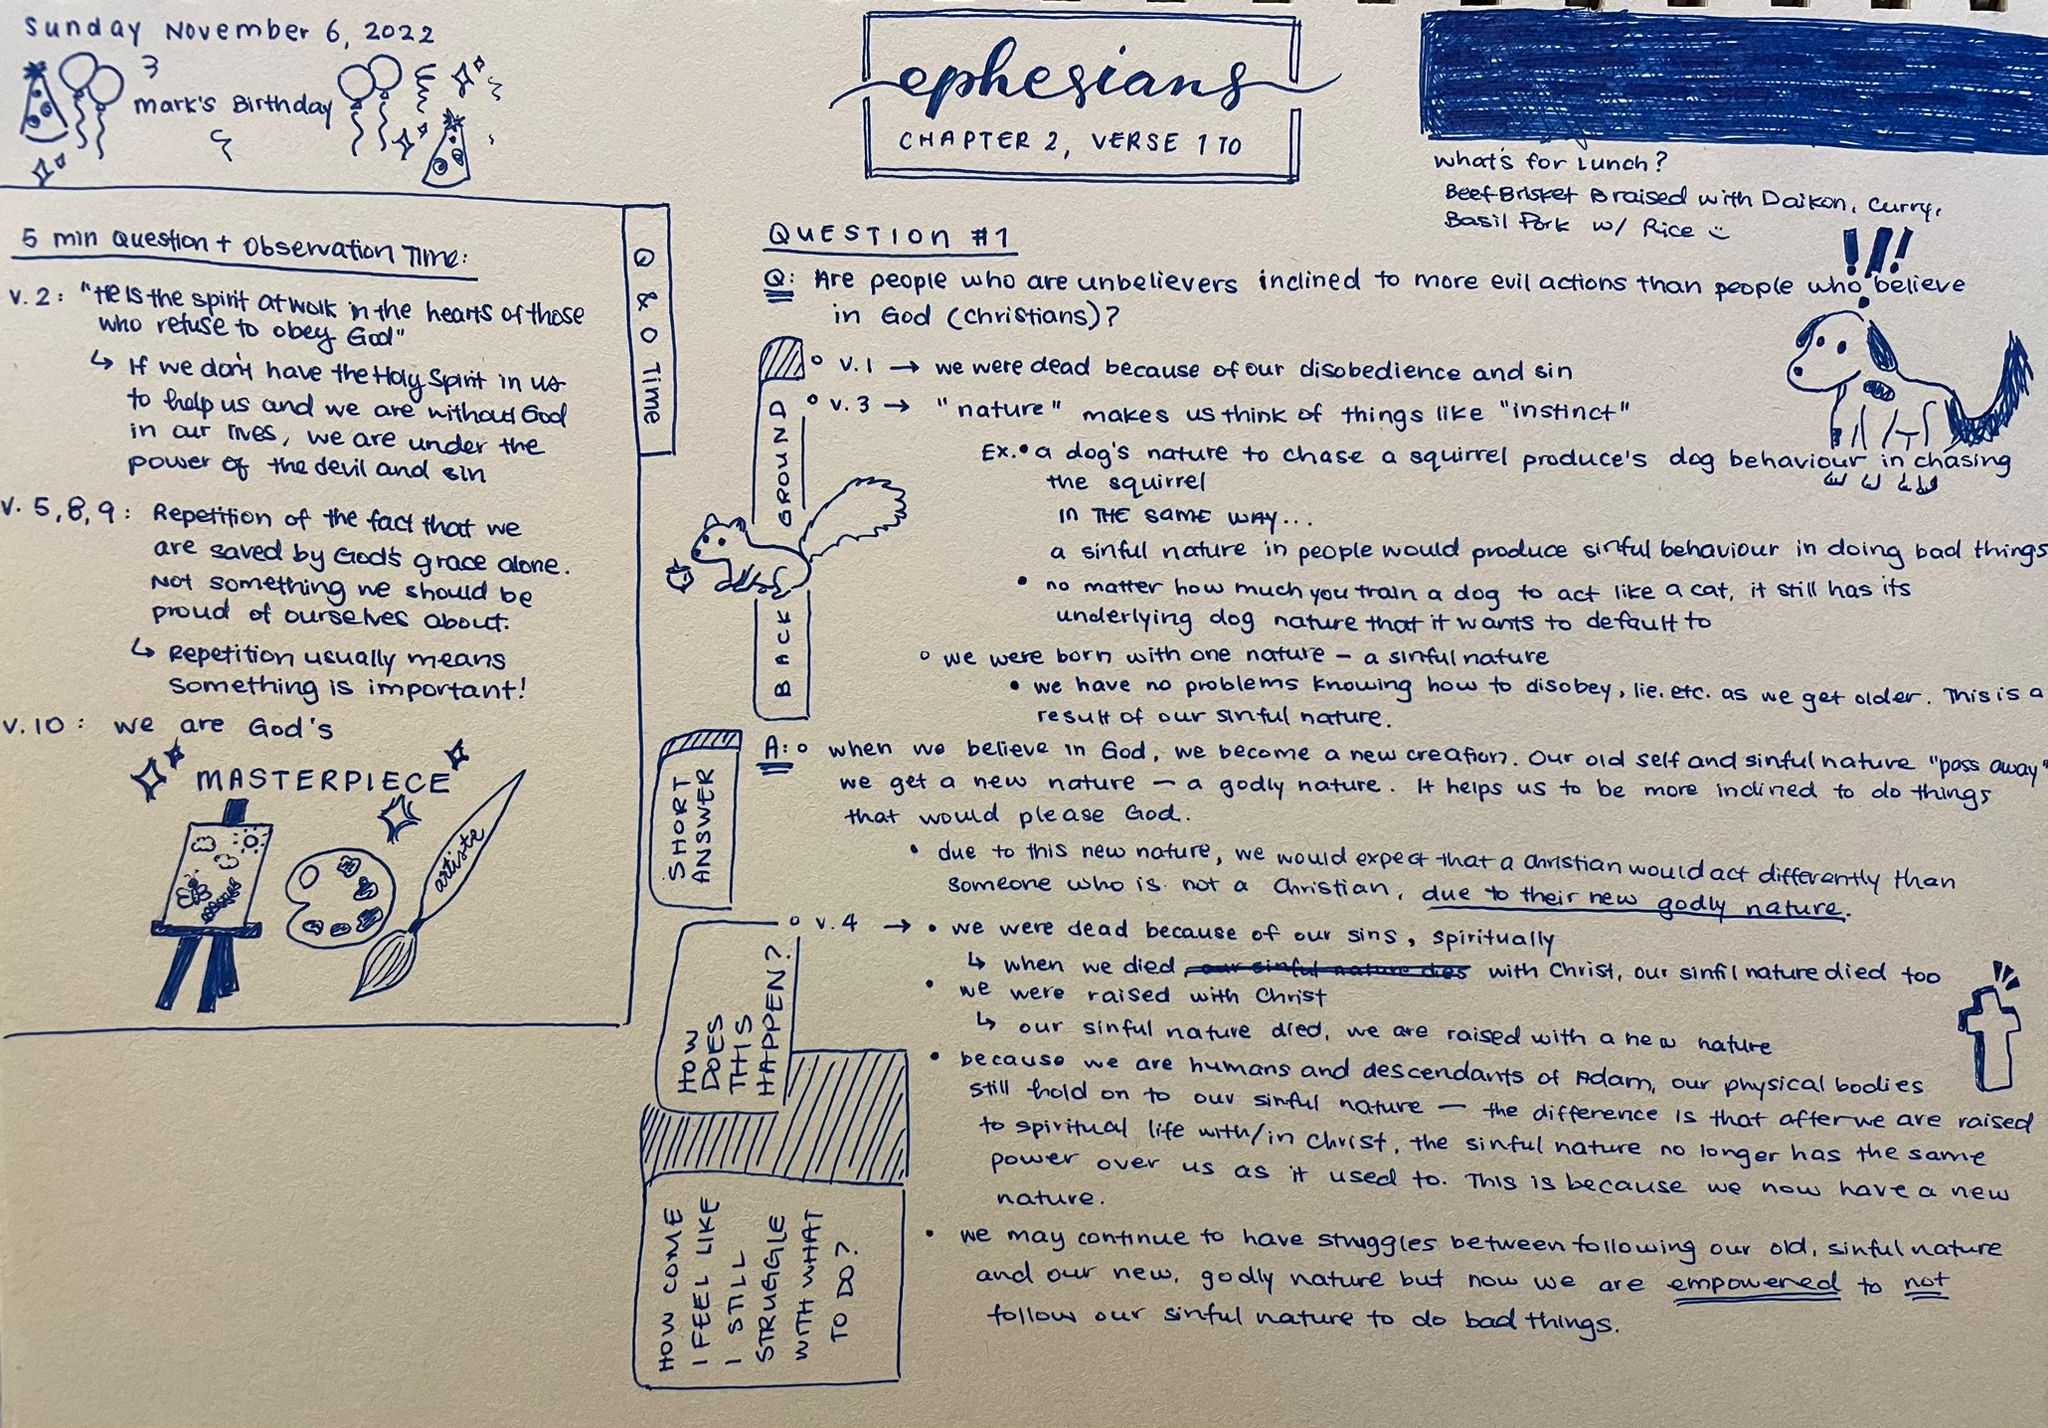 Sunday November 6, 2022
mark's Birthday
ephesians
CHAPTER 2, VERSE 1 TO
what's for Lunch?
Beef Brisket Braised with Daikon, Curry,
Basil Pork w/ Rice :)
5 min Question + Observation Time:
v. 2: "He is the spirit at work in the hearts of those
who refuse to obey God"
↳ If we don't have the Holy Spirit in us
to help us and we are without God
in our lives, we are under the
power of the devil and sin
v. 5, 8, 9: Repetition of the fact that we
are saved by God's grace alone.
Not something we should be
proud of ourselves about.
↳ Repetition usually means
something is important!
v. 10: we are God's
MASTERPIECE
artiste
Q & O Time
QUESTION #1
Q: Are people who are unbelievers inclined to more evil actions than people who believe
in God (Christians)?
!!!
BACKGROUND
v. 1 → we were dead because of our disobedience and sin
v. 3 → "nature" makes us think of things like "instinct"
Ex. • a dog's nature to chase a squirrel produce's dog behaviour in chasing
the squirrel
IN THE SAME WAY...
a sinful nature in people would produce sinful behaviour in doing bad things
• no matter how much you train a dog to act like a cat, it still has its
underlying dog nature that it wants to default to
we were born with one nature – a sinful nature
• we have no problems knowing how to disobey, lie. etc. as we get older. This is a
result of our sinful nature.
SHORT
ANSWER
A: when we believe in God, we become a new creation. Our old self and sinful nature "pass away"
we get a new nature – a godly nature. It helps us to be more inclined to do things
that would please God.
• due to this new nature, we would expect that a Christian would act differently than
someone who is not a Christian, due to their new godly nature.
HOW
DOES
THIS
HAPPEN?
v. 4 → • we were dead because of our sins, spiritually
↳ when we died our sinful nature dies with Christ, our sinfil nature died too
• we were raised with Christ
↳ our sinful nature died, we are raised with a new nature
• because we are humans and descendants of Adam, our physical bodies
still hold on to our sinful nature – the difference is that after we are raised
to spiritual life with/in Christ, the sinful nature no longer has the same
power over us as it used to. This is because we now have a new
nature.
HOW COME
I FEEL LIKE
I STILL
STRUGGLE
WITH WHAT
TO DO?
• we may continue to have struggles between following our old, sinful nature
and our new, godly nature but now we are empowered to not
follow our sinful nature to do bad things.